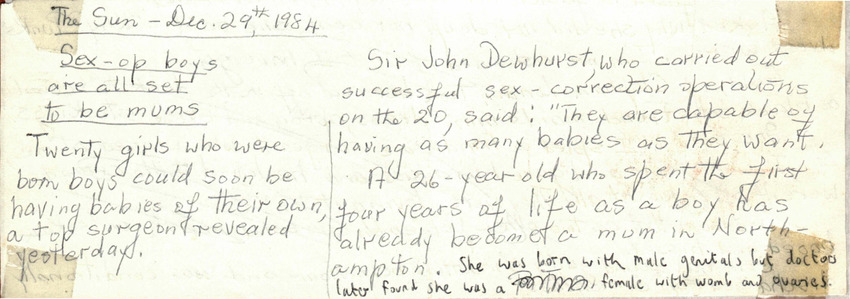 The Sun - Dec. 29th, 1984
Sex-op boys
are all set
to be mums
Twenty girls who were
born boys could soon be
having babies of their own,
a top surgeon revealed
yesterday.
Sir John Dewhurst, who carried out
successful sex-correction operations
on the 20, said: "They are capable of
having as many babies as they want.
A 26-year old who spent the first
four years of life as a boy has
already become a mum in North-
ampton. She was born with male genitals but doctors
later found she was a female with womb and ovaries.